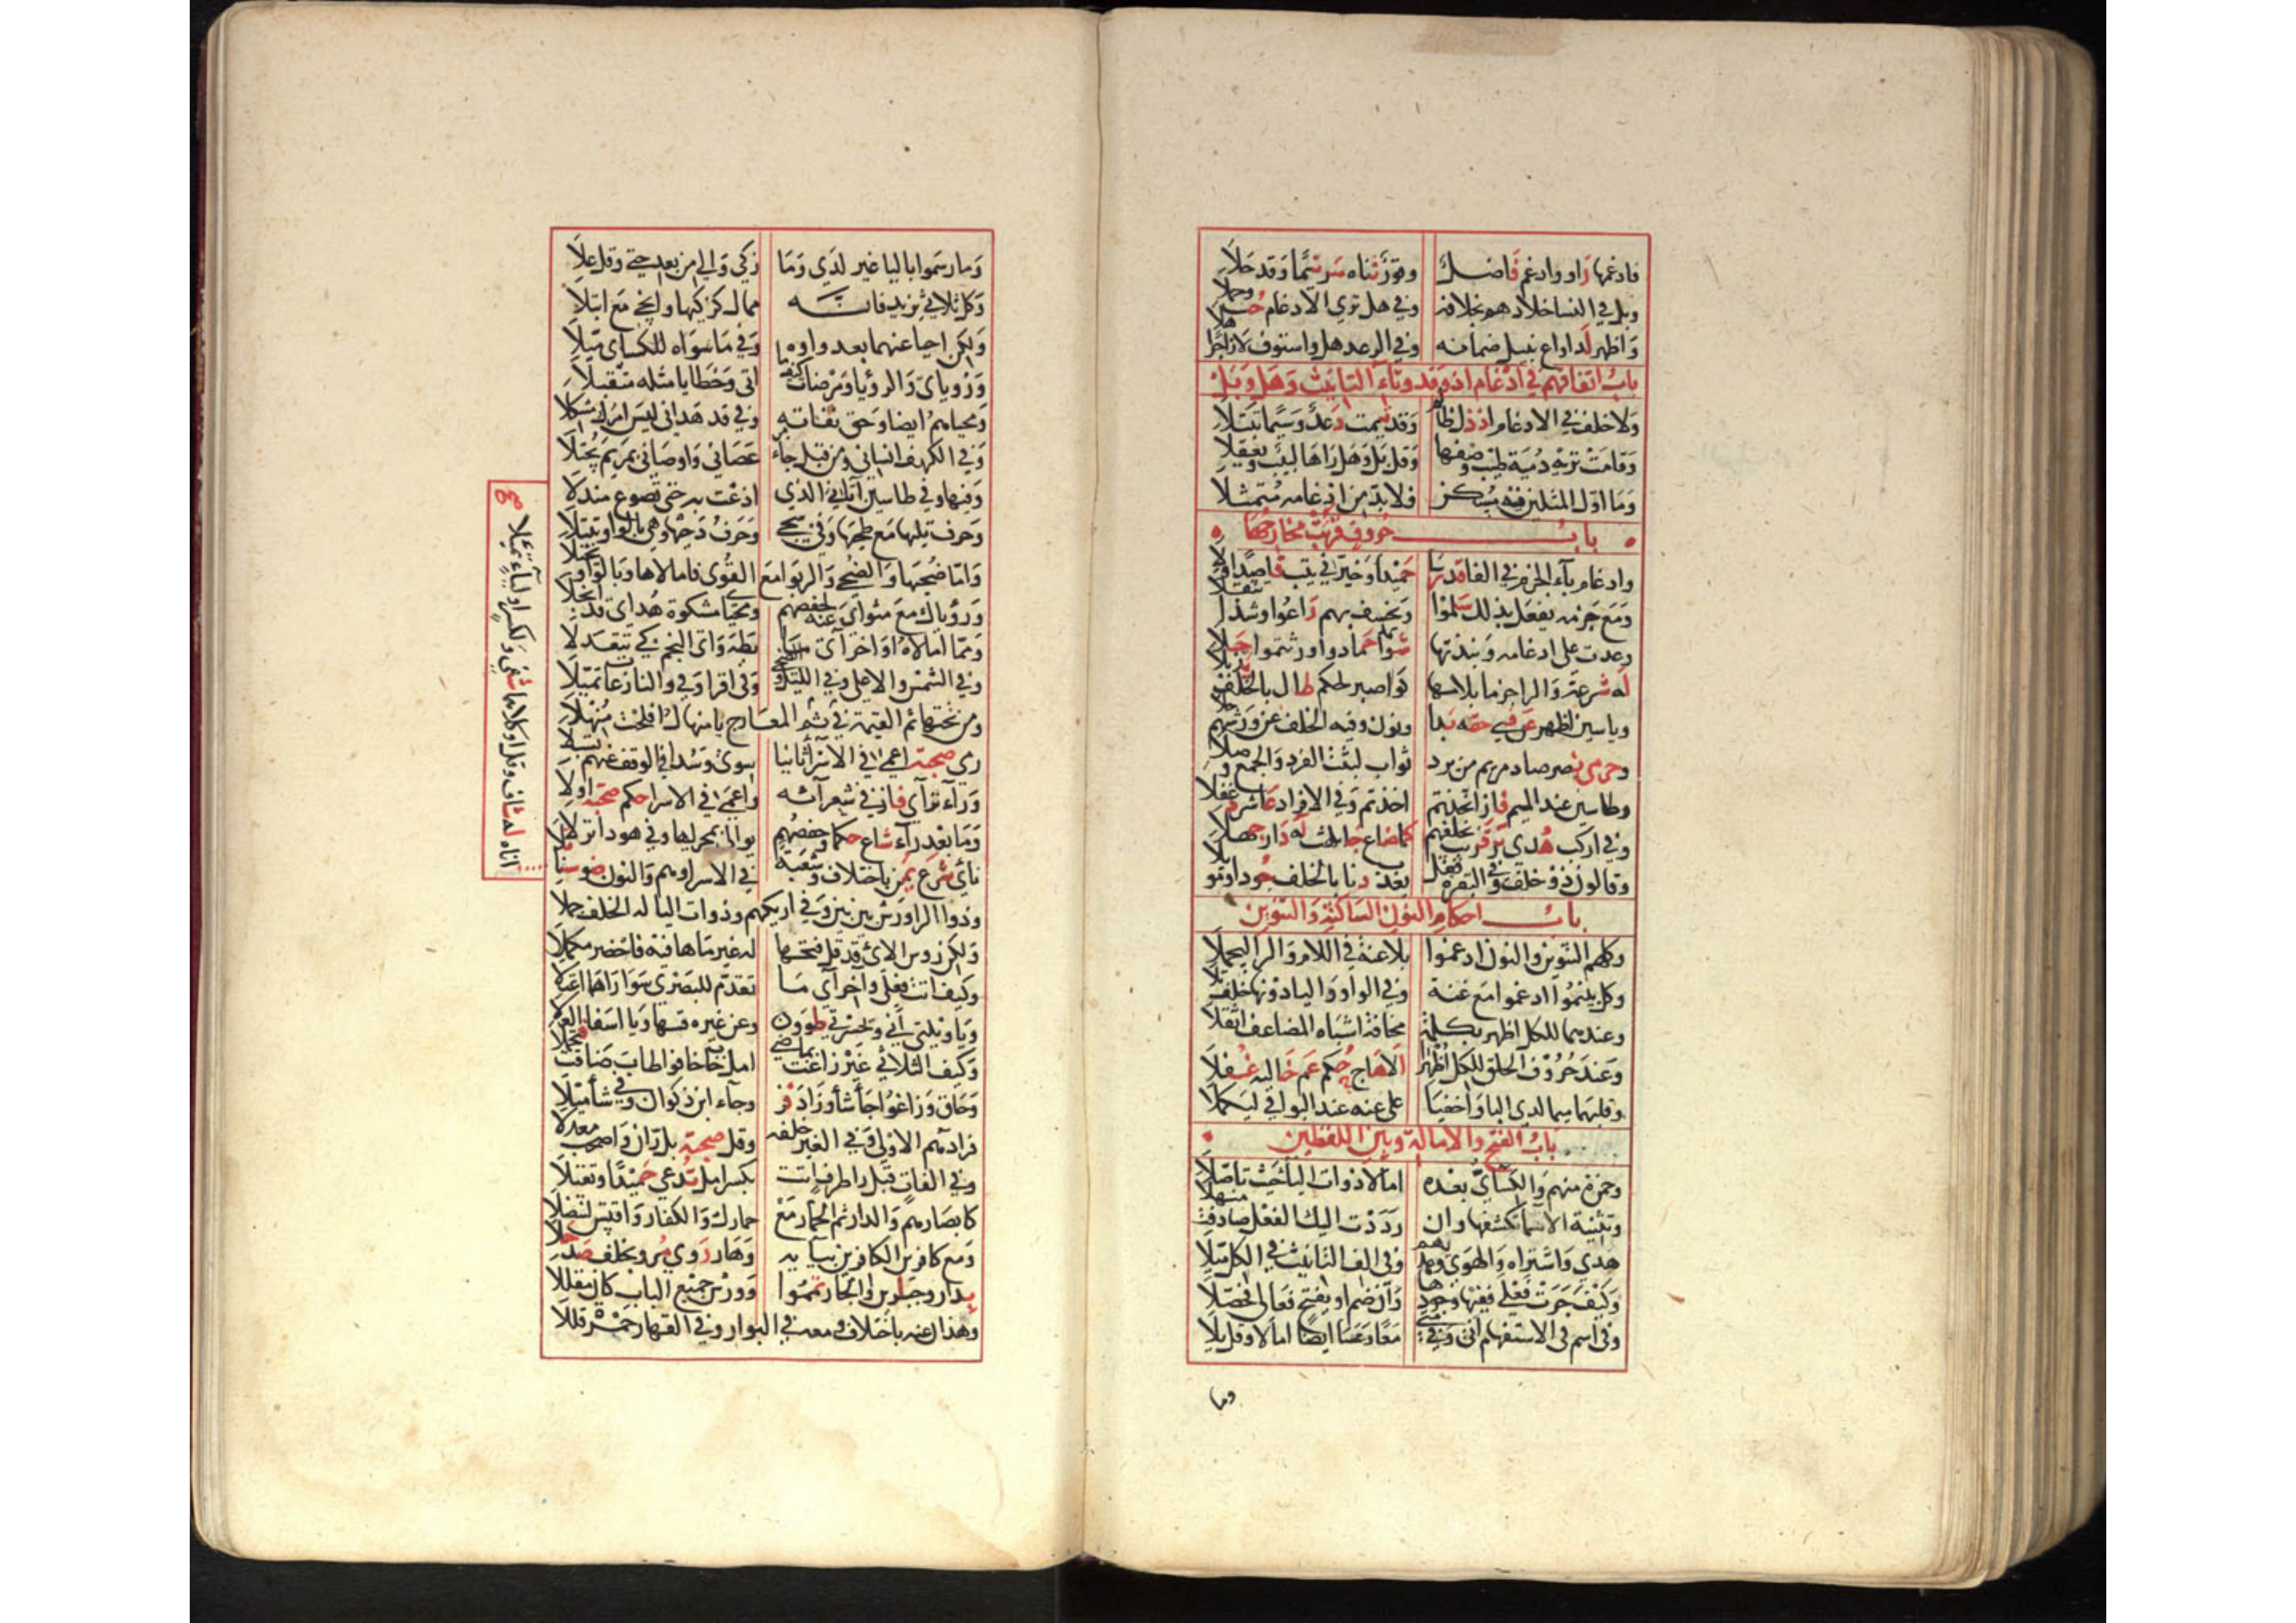 فادغمها راو وادغم فاضل وقور ثناه سر تيما وقد حلا
وبل في النسا خلادهم بخلافه وفي هل ترى الادغام حب وحملا
واظهر لدا واع نبيل ضمانه وفي الرعد هل واستوف لا زاجرا هلا
باب اتفاقهم في ادغام اذ وقد وتاء التانيث وهل وبل
ولا خلف في الادغام اذ ذل ظالم وقد تيمت دعد وسيما تبتلا
وقامت تريه دمية طيب وصفها وقل بل وهل راها لبيب ويعقلا
وما اول المثلين فيه مسكن فلا بد من ادغامه متمثلا
باب حروف قربت مخارجها
وادغام باء الجزم في الفا قد رسا حميدا وخير في يتب قاصدا ولا
ومع جزمه يفعل بذلك سلموا ونخسف بهم راعوا وشذا تثقلا
وعدت على ادغامه ونبذتها شواهد حماد واورثتموا حلا
له شرعه والرا جزما بلامها كواصبر لحكم طال بالخلف يذبلا
وياسين اظهر عن فتى حقه بدا ونون وفيه الخلف عن ورشهم خلا
وحرمي نصر صاد مريم من يرد ثواب لبثت الفرد والجمع وصلا
وطاسين عند الميم فاز اتخذتم اخذتم وفي الافراد عاشر دغفلا
وفي اركب هدى بر قريب بخلفهم كما ضاع جا يلهث له دار جهلا
وقالون ذو خلف وفي البقره فقل يعذب دنا بالخلف جودا وموبلا
باب احكام النون الساكنة والتنوين
وكلهم التنوين والنون ادغموا بلا غنة في اللام والرا ليجملا
وكل بينمو ادغموا مع غنة وفي الواو واليا دونها خلف تلا
وعندهما للكل اظهر بكلمة مخافة اشباه المضاعف اثقلا
وعند حروف الحلق للكل اظهرا الا هاج حكم عم خاليه غفلا
وقلبهما ميما لدى البا واخفيا على غنة عند البواقي ليكملا
باب الفتح والامالة وبين اللفظين
وحمزة منهم والكسائي بعده امالا ذوات الياء حيث تاصلا
وتثنية الاسما تكشفها وان رددت اليك الفعل صادفت منهلا
هدى واشتراه والهوى وهداهم وفي الف التانيث في الكل ميلا
وكيف جرت فعلى ففيها وجودها وان ضم او يفتح فعالى فحصلا
وفي اسم في الاستفهام انى وفي متى معا وعسى ايضا امالا وقل بلى
وما
وما رسموا باليا غير لدى وما زكى والى من بعد حتى وقل على
وكل ثلاثي يزيد فانه ممال كزكيها وانجى مع ابتلى
ولكن احيا عنهما بعد واوه وفي ما سواه للكسائي ميلا
ورؤياي والرؤيا ومرضات كيفما اتى وخطايا مثله متقبلا
ومحياهم ايضا وحق تقاته وفي قد هداني ليس امرك مشكلا
وفي الكهف انساني ومن قبل جاء من عصاني واوصاني بمريم يجتلا
وفيها وفي طاسين اتاني الذي اذعت به حتى تضوع مندلا
وحرف تليها مع طحيها وفي سجى وحرف دحيها وهي بالواو تبتلا
واما ضحيها والضحى والربوا مع القوى فامالاها وبالواو تختلا
ورؤياك مع مثواي عنه لحفصهم ومحياي مشكوة هداي قد انجلا
ومما امالاه اواخر آي ما بطه وآي النجم كي تتعدلا
وفي الشمس والاعلى وفي الليل والضحى وفي اقرا وفي والنازعات تميلا
ومن تحتها ثم القيمة في ثم المعارج يا منهال افلحت منهلا
رمى صحبة اعمى في الاسرا ثانيا سوى وسدا في الوقف عنهم تسبلا
وراء تراآى فاز في شعرائه واعمى في الاسرا حكم صحبة اولا
وما بعد راء شاع حكما وحفصهم يوالي بمجريها وفي هود انزلا
نأى شرع يمن باختلاف وشعبة في الاسرا وهم والنون ضوء سنا تلا
اناه له شاف وقل او كلاهما شفى ولكسر او لياء تميلا صح
وذوا الرا ورش بين بين وفي اريكهم وذوات اليا له الخلف جملا
ولكن رؤس الاي قد قل فتحها له غير ما ها فيه فاحضر مكملا
وكيف اتت فعلى وآخر آي ما تقدم للبصري سوا راهما اعتلا
ويا ويلتى انى ويا حسرتى طووا وعن غيره قسها ويا اسفا العلا
وكيف الثلاثي غير زاغت بماضي امل خاب خافوا طاب ضاقت فتجملا
وحاق وزاغوا جا شأ وزاد فز وجاء ابن ذكوان وفي شأ ميلا
فزادهم الاولى وفي الغير خلفه وقل صحبة بل ران واصحب معدلا
وفي الفات قبل را طرف اتت بكسر امل تدعى حميدا وتقبلا
كابصارهم والدار ثم الحمار مع حمارك والكفار واقتس لتنضلا
ومع كافرين الكافرين بيائه وهار روى مرو بخلف صد حلا
بدار وجبارين والجار تمموا وورش جميع الباب كان مقللا
وهذان عنه باختلاف ومعه في البوار وفي القهار حمزة قللا